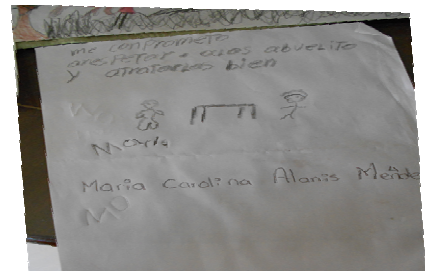 me comprometo
a respetar a los abuelito
y atratarlos bien
Maria Carolina Alanis Ménde